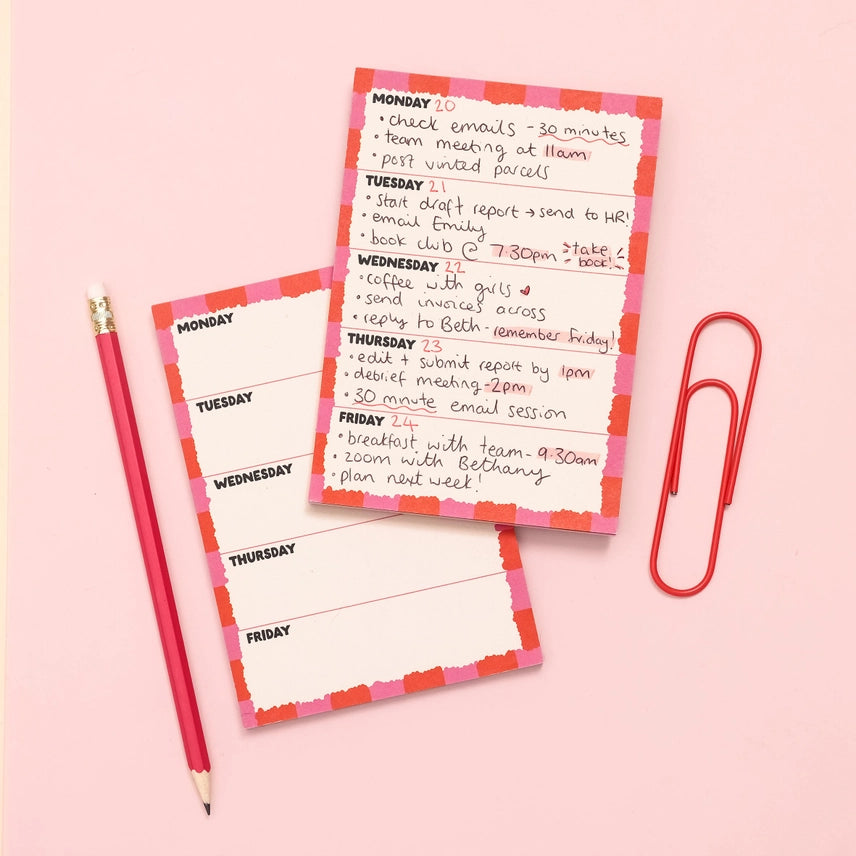 MONDAY 20
• check emails - 30 minutes
• team meeting at 11am
• post vinted parcels
TUESDAY 21
• start draft report → send to HR!
• email Emily
• book club @ 7:30pm take book!
WEDNESDAY 22
• coffee with girls ♥
• send invoices across
• reply to Beth - remember friday!
THURSDAY 23
• edit + submit report by 1pm
• debrief meeting - 2pm
• 30 minute email session
FRIDAY 24
• breakfast with team - 9.30am
• zoom with Bethany
• plan next week!
MONDAY
TUESDAY
WEDNESDAY
THURSDAY
FRIDAY